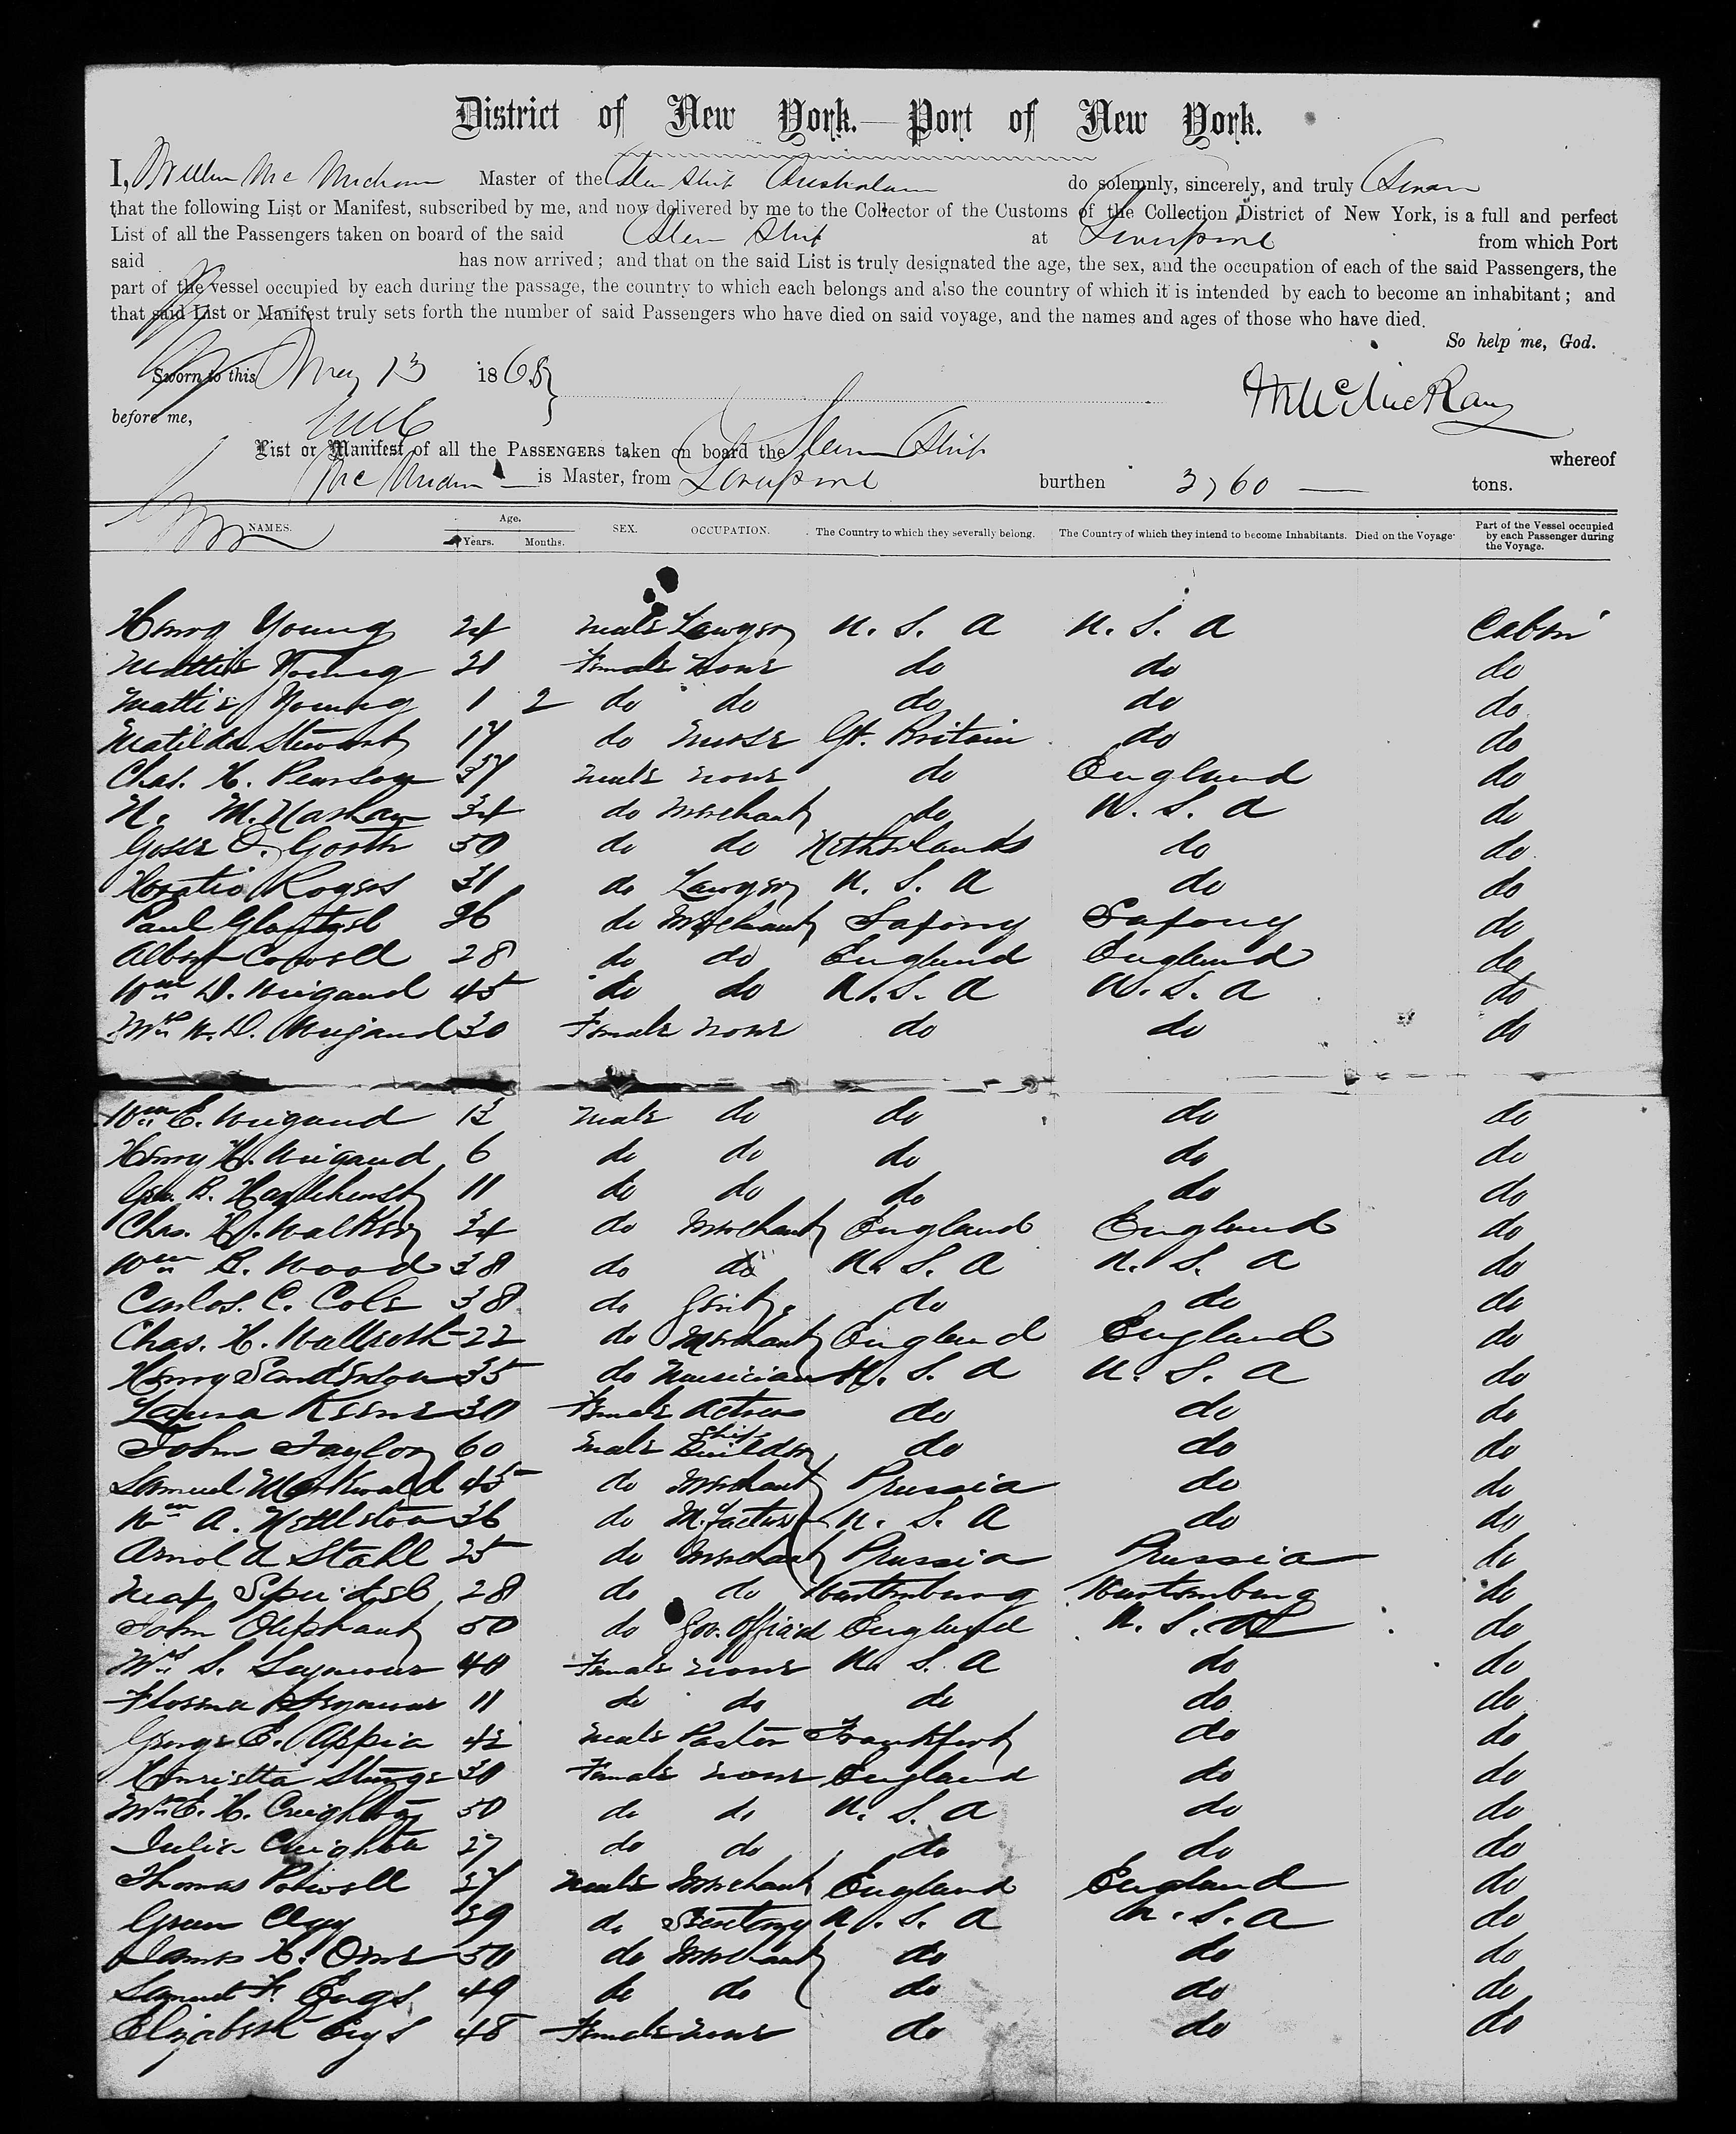 District of New York.— Port of New York.
I, Mc Master of the Steam Ship Australian do solemnly, sincerely, and truly Swear
that the following List or Manifest, subscribed by me, and now delivered by me to the Collector of the Customs of the Collection District of New York, is a full and perfect
List of all the Passengers taken on board of the said Steam Ship at Liverpool from which Port
said has now arrived; and that on the said List is truly designated the age, the sex, and the occupation of each of the said Passengers, the
part of the vessel occupied by each during the passage, the country to which each belongs and also the country of which it is intended by each to become an inhabitant; and
that said List or Manifest truly sets forth the number of said Passengers who have died on said voyage, and the names and ages of those who have died.
So help me, God.
Sworn to this May 13 1868
before me,
List or Manifest of all the PASSENGERS taken on board the Steam Ship whereof
is Master, from Liverpool burthen 2760 tons.
NAMES. Age. Years. Months. SEX. OCCUPATION. The Country to which they severally belong. The Country of which they intend to become Inhabitants. Died on the Voyage. Part of the Vessel occupied by each Passenger during the Voyage.
Henry Young 24 male Lawyer U. S. A U. S. A Cabin
Mattie Young 21 Female none do do do
Mattie Young 1 2 do do do do do
Matilda Stewart 17 do nurse Gt. Britain do do
Chas. H. Pearson 37 male none do England do
N. M. 34 do Merchant do U. S. A do
Gosse 50 do do Netherlands do do
Horatio Rogers 31 do Lawyer U. S. A do do
Paul 26 do Merchant Saxony Saxony do
Albert 28 do do England England do
Wm D. Wiegand 45 do do U. S. A U. S. A do
Mrs W. D. Wiegand 30 Female none do do do
Wm E. Wiegand 13 male do do do do
Henry H. Wiegand 6 do do do do do
Geo. B. Hazlehurst 11 do do do do do
Chas. H. Walker 34 do Merchant England England do
Wm B. Wood 38 do do U. S. A U. S. A do
Carlos. C. Cole 38 do Gent. do do do
Chas. H. Wallroth 22 do Merchant England England do
Henry Sanderson 35 do Musician U. S. A U. S. A do
Laura Keene 30 Female Actress do do do
John Taylor 60 male Ship Builder do do do
Samuel Markwald 45 do Merchant Prussia do do
Wm A. Nettleton 36 do M.facturer U. S. A do do
Arnold Stahl 25 do Merchant Prussia Prussia do
Max Speidel 28 do do Wurtemburg Wurtemburg do
John Oliphant 50 do Gov. Official England U. S. A do
Mrs. S. Seymour 40 Female none U. S. A do do
Seymour 11 do do do do do
George E. Appia 42 male Pastor Frankfort do do
Henrietta Sturge 30 Female none England do do
Mrs E. H. Creighton 50 do do U. S. A do do
Julia Creighton 27 do do do do do
Thomas 37 male Merchant England England do
Green Clay 29 do Secretary U. S. A U. S. A do
James H. Orne 50 do Merchant do do do
Samuel F. Engs 49 do do do do do
Elizabeth Engs 48 Female none do do do